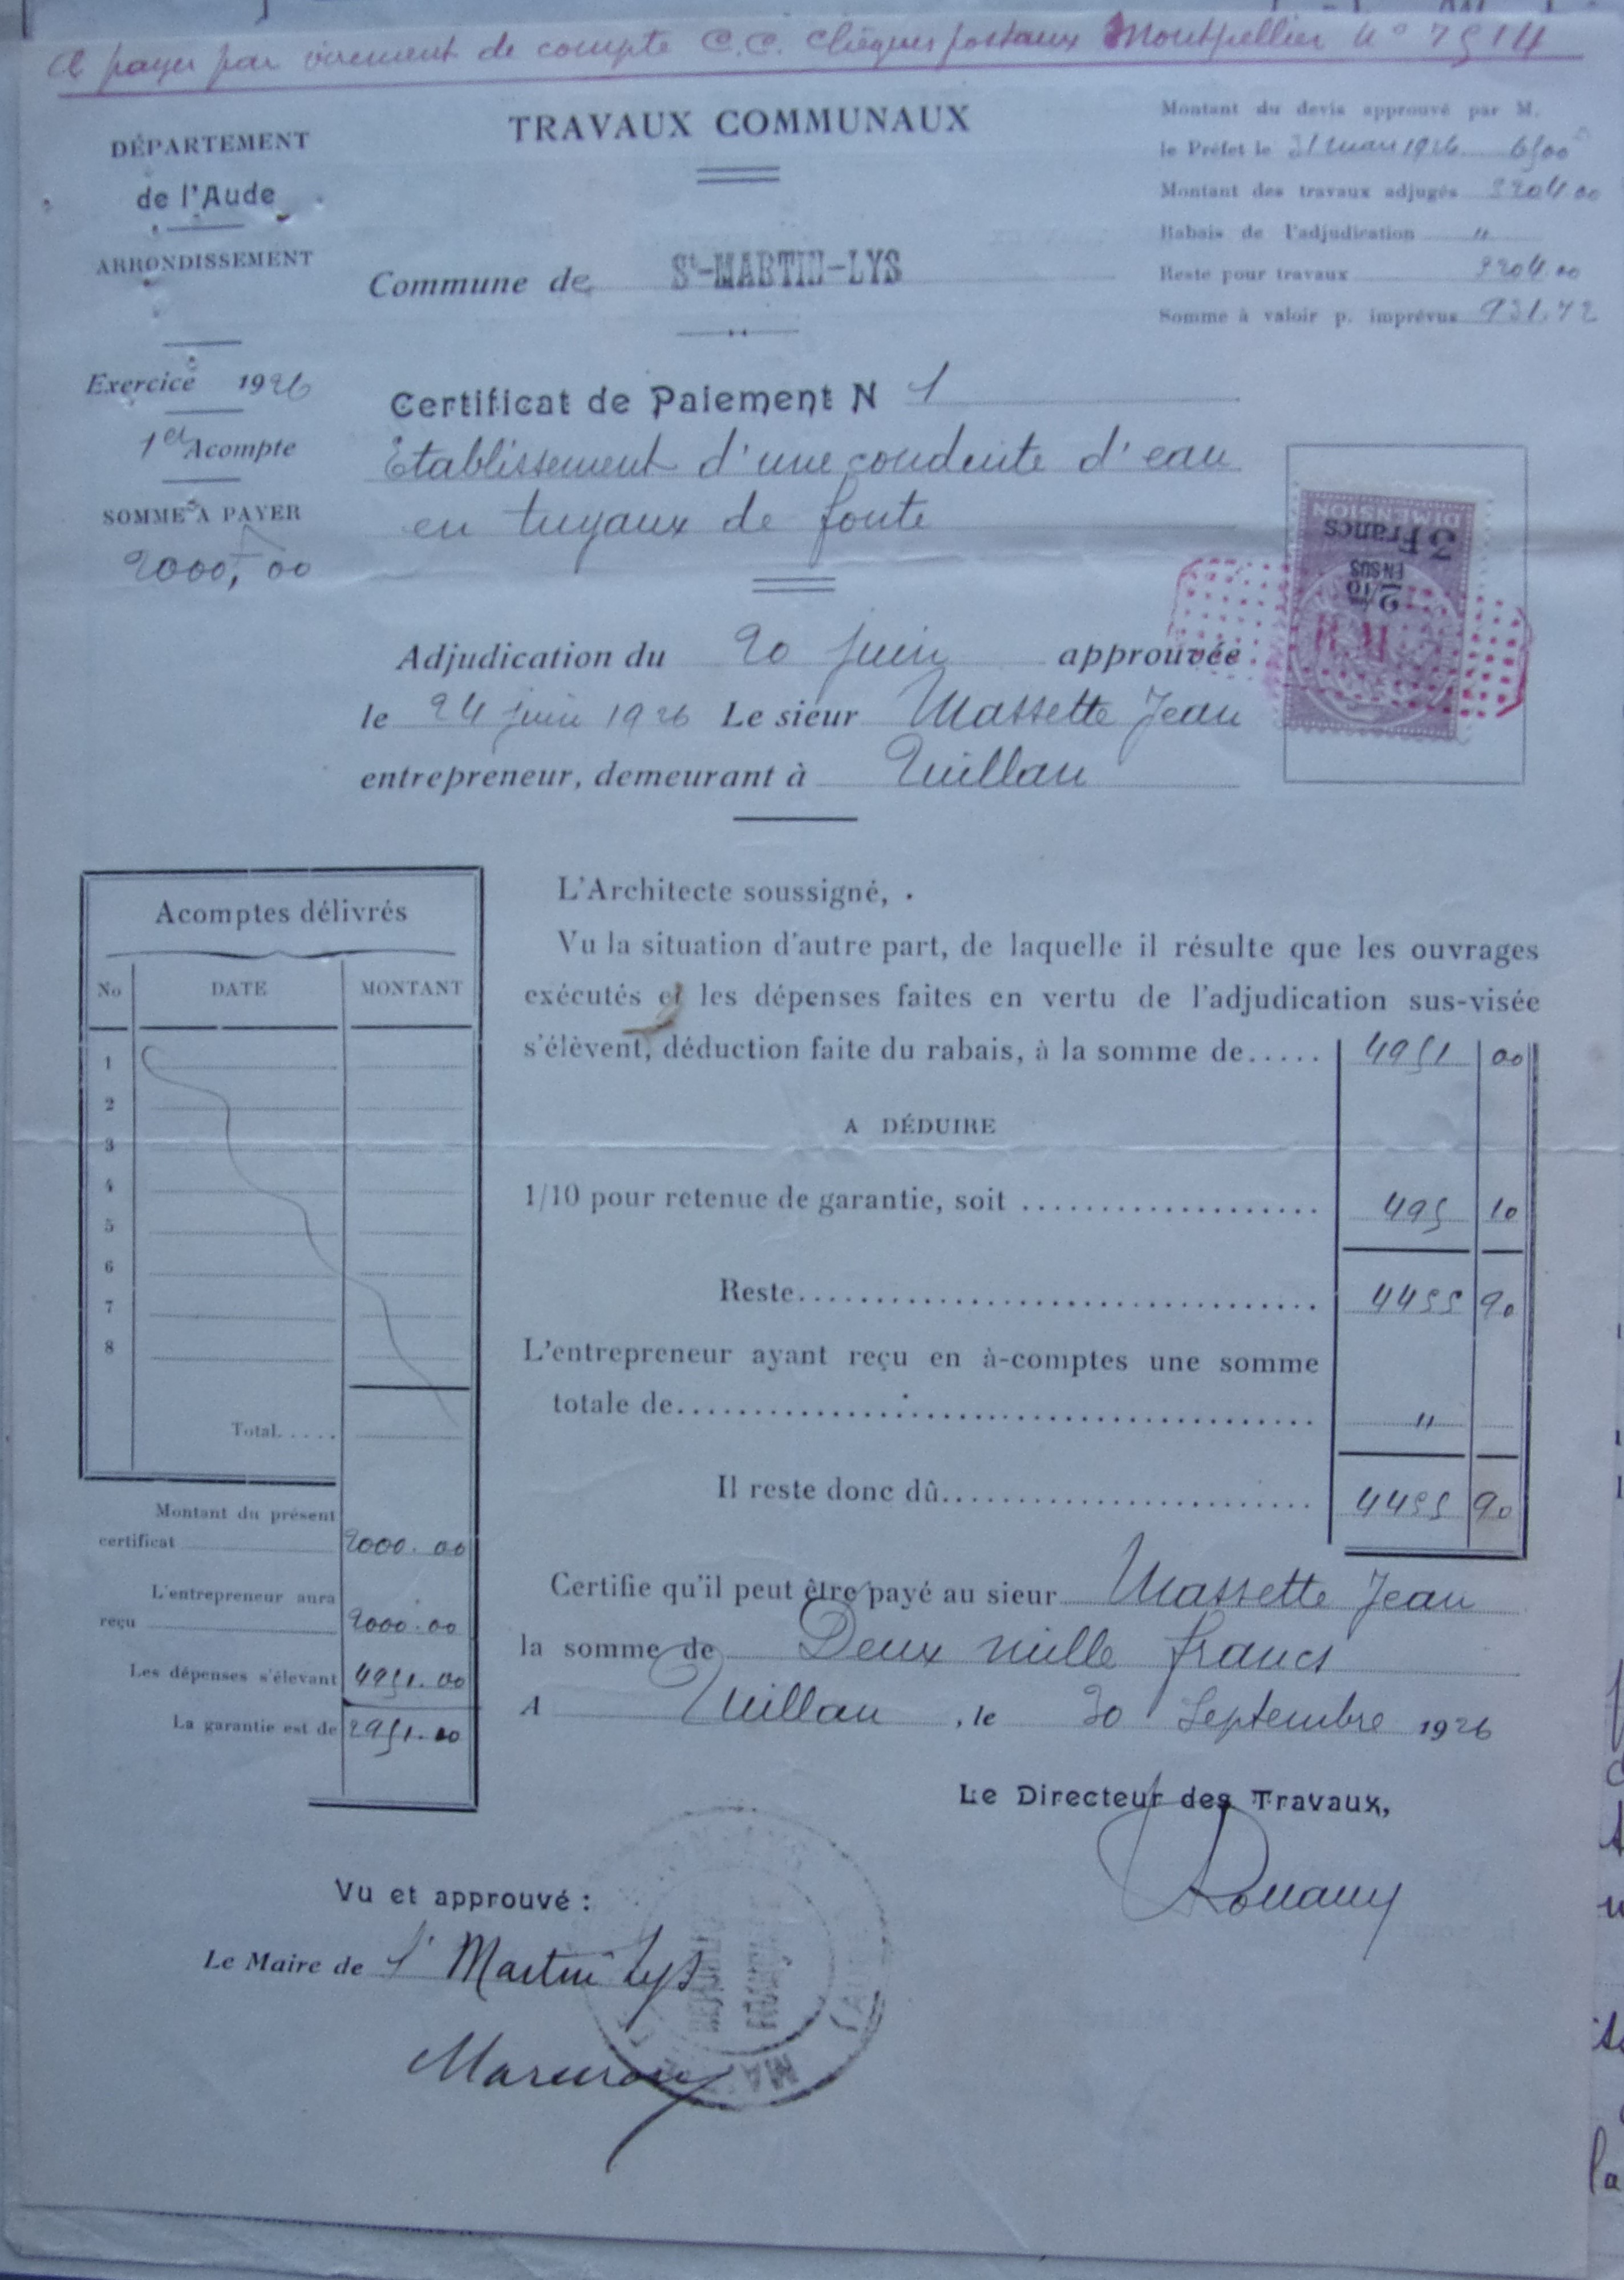 A payer par virement de compte C.C. Chèques postaux Montpellier N° 7514
DÉPARTEMENT
de l'Aude
ARRONDISSEMENT
Exercice 1926
1er Acompte
SOMME A PAYER
2000f,00
TRAVAUX COMMUNAUX
Commune de St-MARTIN-LYS
Montant du devis approuvé par M.
le Préfet le 31 mars 1926 6500
Montant des travaux adjugés 5204.00
Rabais de l'adjudication "
Reste pour travaux 5204.00
Somme à valoir p. imprévus 931.72
Certificat de Paiement N 1
Etablissement d'une conduite d'eau
en tuyaux de fonte
DIMENSION
3 Francs
EN SUS
2/10
Adjudication du 20 juin approuvée
le 24 juin 1926 Le sieur Massette Jean
entrepreneur, demeurant à Quillan
Acomptes délivrés
No DATE MONTANT
1
2
3
4
5
6
7
8
Total.....
Montant du présent
certificat 2000.00
L'entrepreneur aura
reçu 2000.00
Les dépenses s'élevant 4951.00
La garantie est de 2951.00
L'Architecte soussigné,
Vu la situation d'autre part, de laquelle il résulte que les ouvrages
exécutés et les dépenses faites en vertu de l'adjudication sus-visée
s'élèvent, déduction faite du rabais, à la somme de..... 4951 00
A DÉDUIRE
1/10 pour retenue de garantie, soit .................... 495 10
Reste.................................. 4455 90
L'entrepreneur ayant reçu en à-comptes une somme
totale de.......................................... "
Il reste donc dû........................ 4455 90
Certifie qu'il peut être payé au sieur Massette Jean
la somme de Deux mille francs
A Quillan, le 30 Septembre 1926
Le Directeur des Travaux,
Vu et approuvé :
Le Maire de St Martin Lys